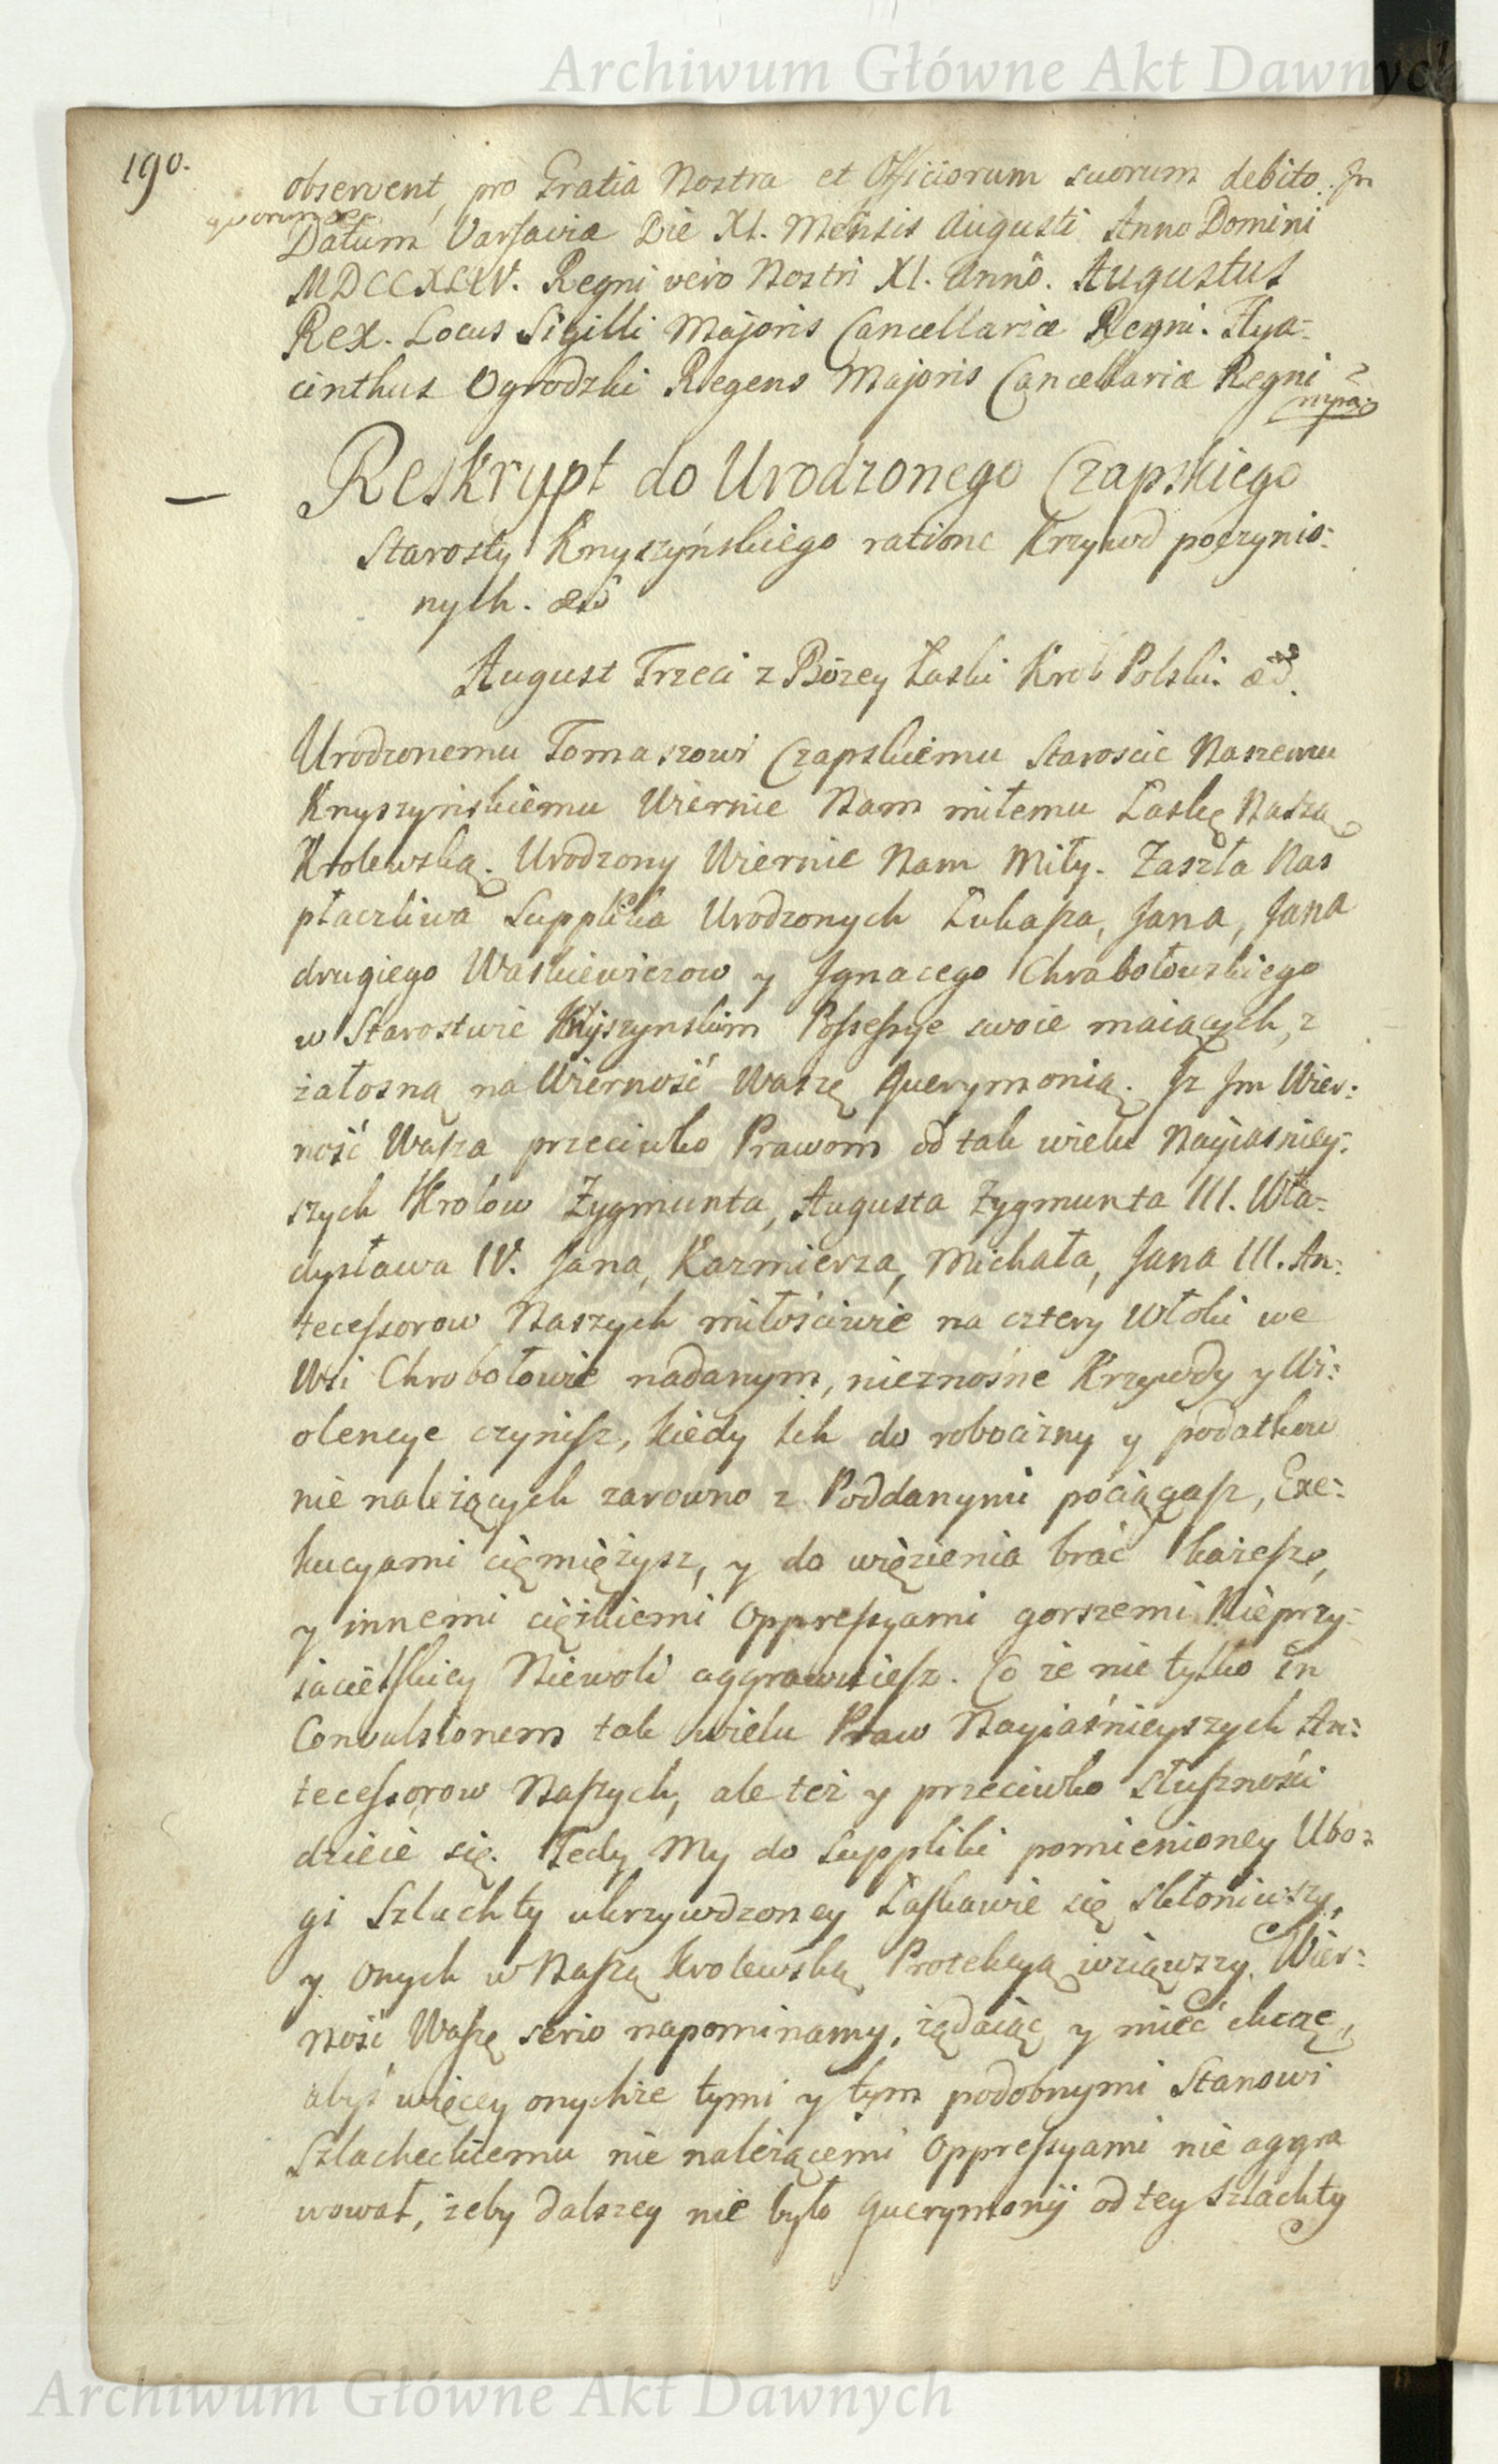 Archiwum Główne Akt Dawnych
190.
observent, pro Gratia Nostra et Officiorum suorum debito. In
quorum
Datum Varsaviæ Die XI. Mensis Augusti Anno Domini
MDCCXLIV. Regni vero Nostri XI. Anno. Augustus
Rex. Locus Sigilli Majoris Cancellariæ Regni. Hya=
cinthus Ogrodzki Regens Majoris Cancellariæ Regni
mpa
Reskrypt do Urodzonego Czapskiego
Starosty Knyszyńskiego ratione Krzywd poczynio:
nych.
August Trzeci z Bożey Łaski Krol Polski
Urodzonemu Tomaszowi Czapskiemu Staroscie Naszemu
Knyszyńskiemu Wiernie Nam miłemu Łaskę Naszą
Krolewską. Urodzony Wiernie Nam Miły. Zaszła Nas
płaczliwa Supplika Urodzonych Łukasza, Jana, Jana
drugiego Waskiewiczow y Jgnacego Chrabołowskiego
w Starostwie Knyszynskim Possessye swoie maiących, z
żałosną na Wierność Waszę querymonią. Jż Jm Wier:
ność Wasza przeciwko Prawom od tak wielu Nayiasniey:
szych Krolow Zygmunta, Augusta Zygmunta III. Wła=
dysława IV. Jana, Kazmierza, Michała, Jana III. An:
tecessorow Naszych miłościwie na cztery Włoki we
Wsi Chrobołowie nadanym, nieznośne Krzywdy y Wi:
olencye czynisz, kiedy ich do robocizny y podatkow
nie należących zarowno z Poddanymi pociągasz, Exe:
kucyami ciemiężysz, y do więzienia brać każesz,
y innemi ciężkiemi Oppressyami gorszemi Nieprzy=
iacielskiey Niewoli aggrawuiesz. Co że nie tylko in
Convulsionem tak wielu Praw Nayiaśnieyszych An:
tecessorow Naszych, ale też y przeciwko Słuszności
dzieie się. Tedy My do Suppliki pomienioney Ubo=
gi Szlachty ukrzywdzoney Łaskawie się skłoniwszy,
y onych w Naszą Krolewską Protekcyą wziąwszy, Wier:
ność Waszę serio napominamy, żądaiąc y mieć chcąc,
abyś więcey onychże tymi y tym podobnymi Stanowi
Szlacheckiemu nie należącemi Oppressyami nie aggra
wował, żeby dalszey nie było querymonij od tey Szlachty
Archiwum Główne Akt Dawnych